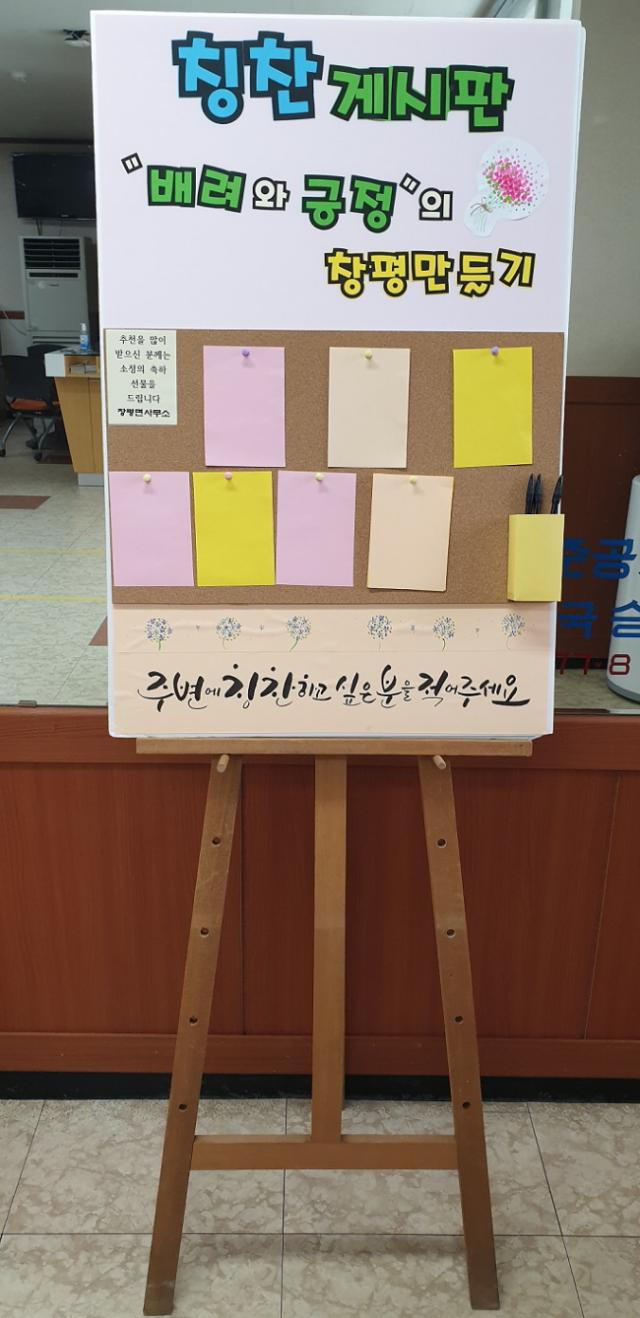 칭찬 게시판
"배려와 긍정"의
창평만들기
추천을 많이
받으신 분께는
소정의 축하
선물을
드립니다
창평면사무소
주변에 칭찬하고 싶은 분을 적어주세요
준공
국 승
77-8